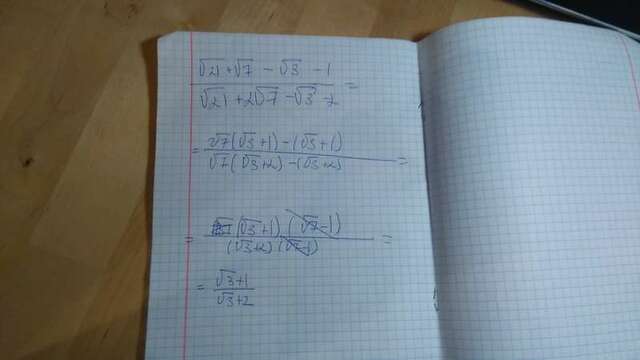 (√21 + √7 - √3 - 1)/(√21 + 2√7 - √3 - 2) =
= (√7(√3 + 1) - (√3 + 1))/(√7(√3 + 2) - (√3 + 2)) =
= ((√3 + 1)(√7 - 1))/((√3 + 2)(√7 - 1)) =
= (√3 + 1)/(√3 + 2)